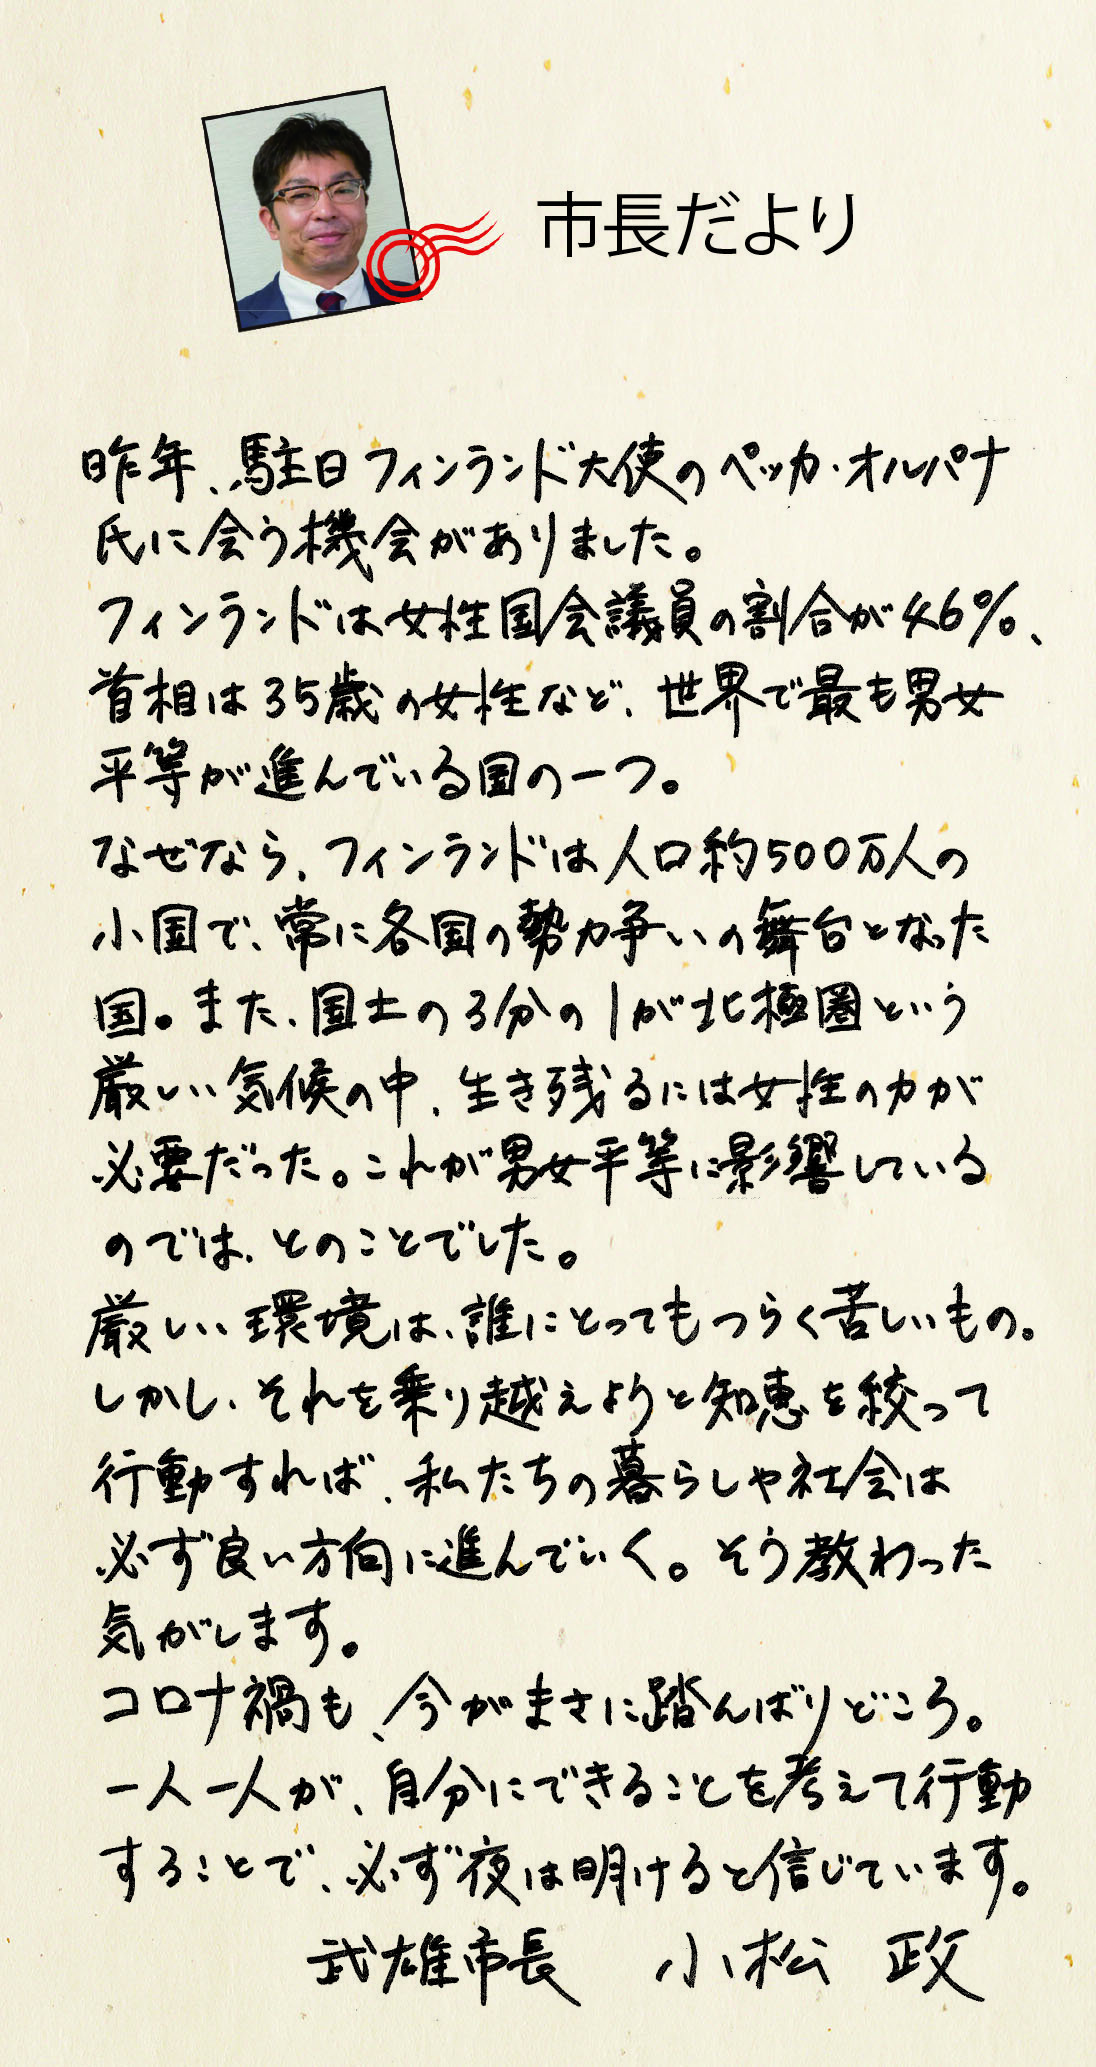 市長だより
昨年、駐日フィンランド大使のペッカ・オルパナ
氏に会う機会がありました。
フィンランドは女性国会議員の割合が46%、
首相は35歳の女性など、世界で最も男女
平等が進んでいる国の一つ。
なぜなら、フィンランドは人口約500万人の
小国で、常に各国の勢力争いの舞台となった
国。また、国土の3分の1が北極圏という
厳しい気候の中、生き残るには女性の力が
必要だった。これが男女平等に影響している
のでは、とのことでした。
厳しい環境は、誰にとってもつらく苦しいもの。
しかし、それを乗り越えようと知恵を絞って
行動すれば、私たちの暮らしや社会は
必ず良い方向に進んでいく。そう教わった
気がします。
コロナ禍も、今がまさに踏んばりどころ。
一人一人が、自分にできることを考えて行動
することで、必ず夜は明けると信じています。
武雄市長 小松 政